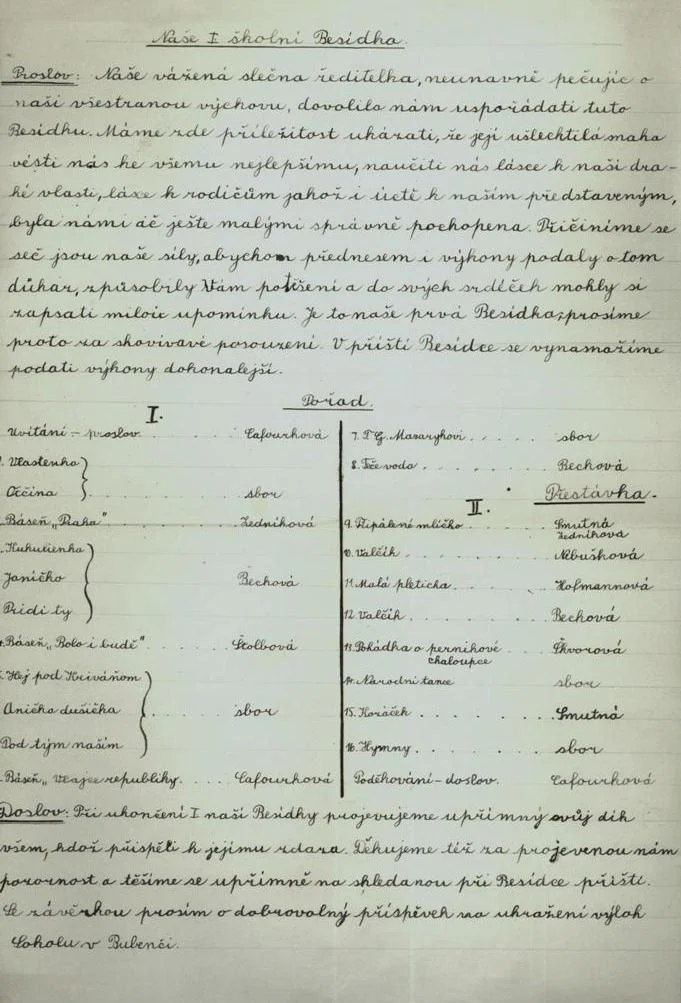 Naše I školní Besídka.
Proslov: Naše vážená slečna ředitelka, neunavně pečujíc o
naši všestranou výchovu, dovolila nám uspořádati tuto
Besídku. Máme zde příležitost ukázati, že její ušlechtilá snaha
vésti nás ke všemu nejlepšímu, naučiti nás lásce k naší dra-
hé vlasti, lásce k rodičům jakož i úctě k naším představeným,
byla námi ač ješte malými správně pochopena. Přičiníme se
seč jsou naše síly, abychom přednesem i výkony podaly o tom
důkaz, způsobily Vám potěšení a do svých srdéček mohly si
zapsati milou upomínku. Je to naše prvá Besídka, prosíme
proto za shovívavé posouzení. V příští Besídce se vynasnažíme
podati výkony dokonalejší.
Pořad.
I.
Uvítání – proslov. . . . Cafourková
Vlastenka
Otčina . . . . sbor
Báseň „Praha" . . . . . Zedníková
Kukulienka
Janíčko Bechová
Pridi ty
Báseň „Bolo i budě". Štolbová
Hej pod Kriváňom
Anička dušička . . . . . sbor
Pod tým naším
Báseň „ republiky. . . . Cafourková
7. T G. Masarykovi . . . . sbor
8. Teče voda . . . . . Bechová
Přestávka.
II.
9. Připálené mlíčko . . . . . Smutná
Zedníková
10. Valčík . . . . . Nebušková
11. Malá pleticha . . . . Hofmannová
12 Valčík . . . . . Bechová
13. Pohádka o perníkové Škvorová
chaloupce
14. Národní tance sbor
15. Kozáček . . . . . Smutná
16. Hymny . . . . . sbor
Poděkování – doslov. Cafourková
Doslov: Při ukončení I naší Besídky projevujeme upřímný svůj dík
všem, kdož přispěli k jejímu zdaru. Děkujeme též za projevenou nám
pozornost a těšíme se upřímně na shledanou při Besídce příští.
Se závěrkou prosím o dobrovolný příspěvek na uhražení výloh
Sokolu v Bubenči.